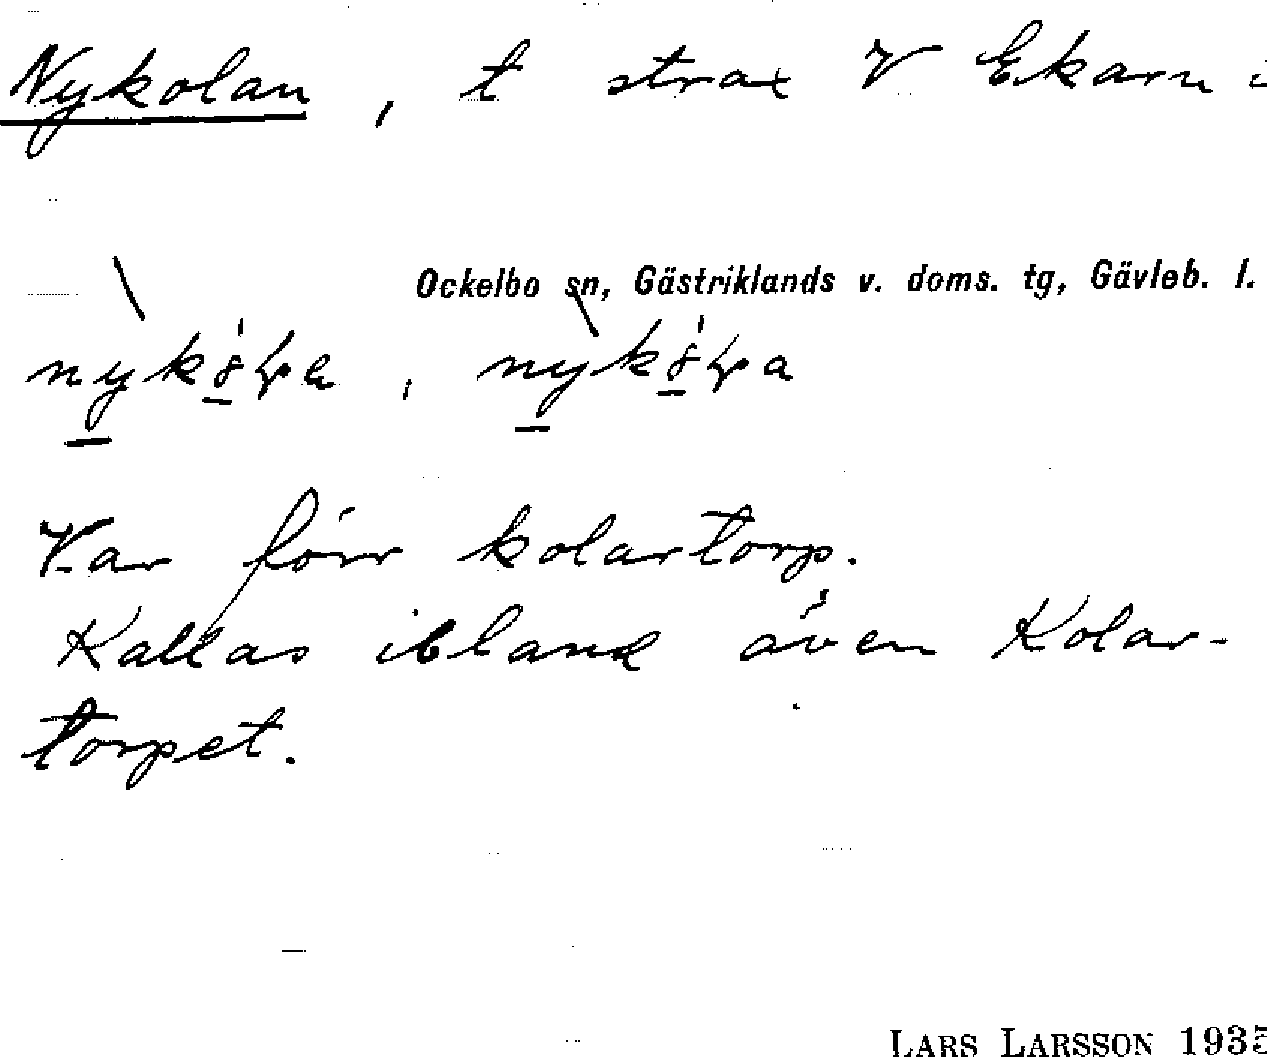 Nykolan, t strax V Ekarn i
Ockelbo sn, Gästriklands v. doms. tg, Gävleb. l.
Var förr kolartorp.
Kallas ibland även Kolar-
torpet.
LARS LARSSON 1935